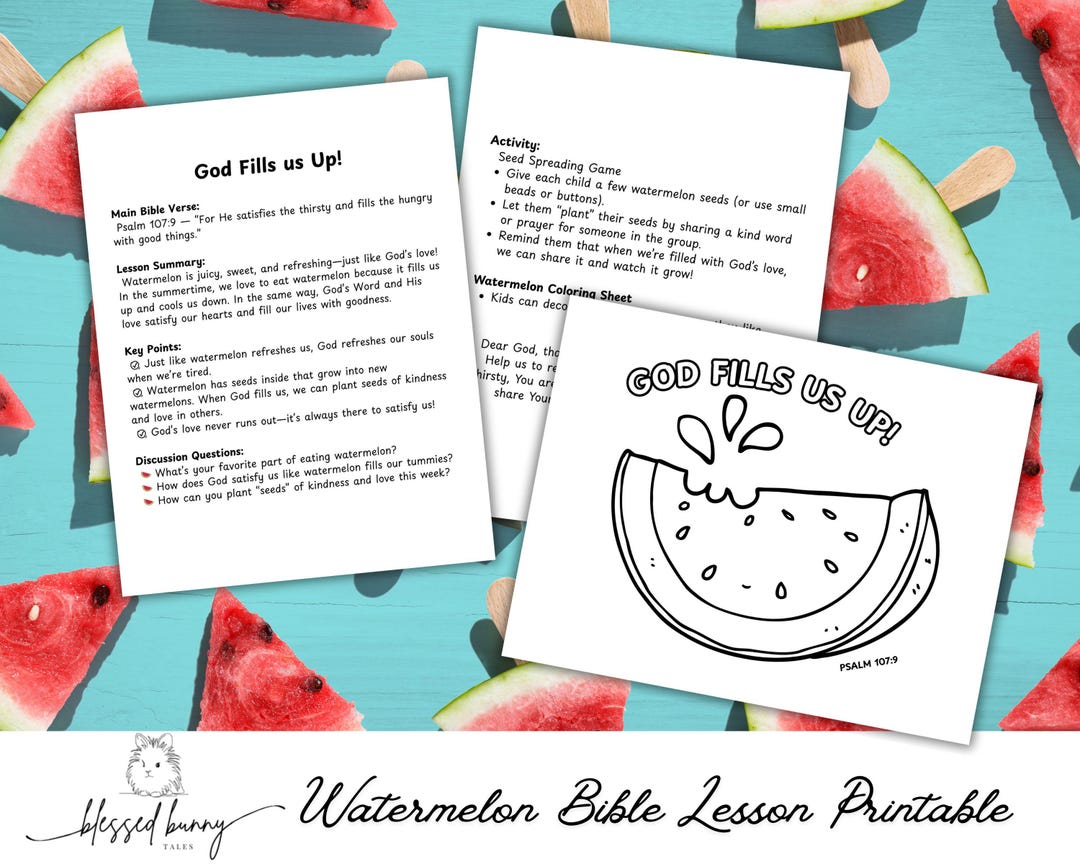 God Fills us Up!
Main Bible Verse:
Psalm 107:9 — "For He satisfies the thirsty and fills the hungry
with good things."
Lesson Summary:
Watermelon is juicy, sweet, and refreshing—just like God's love!
In the summertime, we love to eat watermelon because it fills us
up and cools us down. In the same way, God's Word and His
love satisfy our hearts and fill our lives with goodness.
Key Points:
Just like watermelon refreshes us, God refreshes our souls
when we're tired.
Watermelon has seeds inside that grow into new
watermelons. When God fills us, we can plant seeds of kindness
and love in others.
God's love never runs out—it's always there to satisfy us!
Discussion Questions:
What's your favorite part of eating watermelon?
How does God satisfy us like watermelon fills our tummies?
How can you plant "seeds" of kindness and love this week?
Activity:
Seed Spreading Game
• Give each child a few watermelon seeds (or use small
beads or buttons).
• Let them "plant" their seeds by sharing a kind word
or prayer for someone in the group.
• Remind them that when we're filled with God's love,
we can share it and watch it grow!
Watermelon Coloring Sheet
• Kids can deco
Dear God, tha
Help us to re
hirsty, You are
share Your
GOD FILLS US UP!
PSALM 107:9
blessed bunny
TALES
Watermelon Bible Lesson Printable